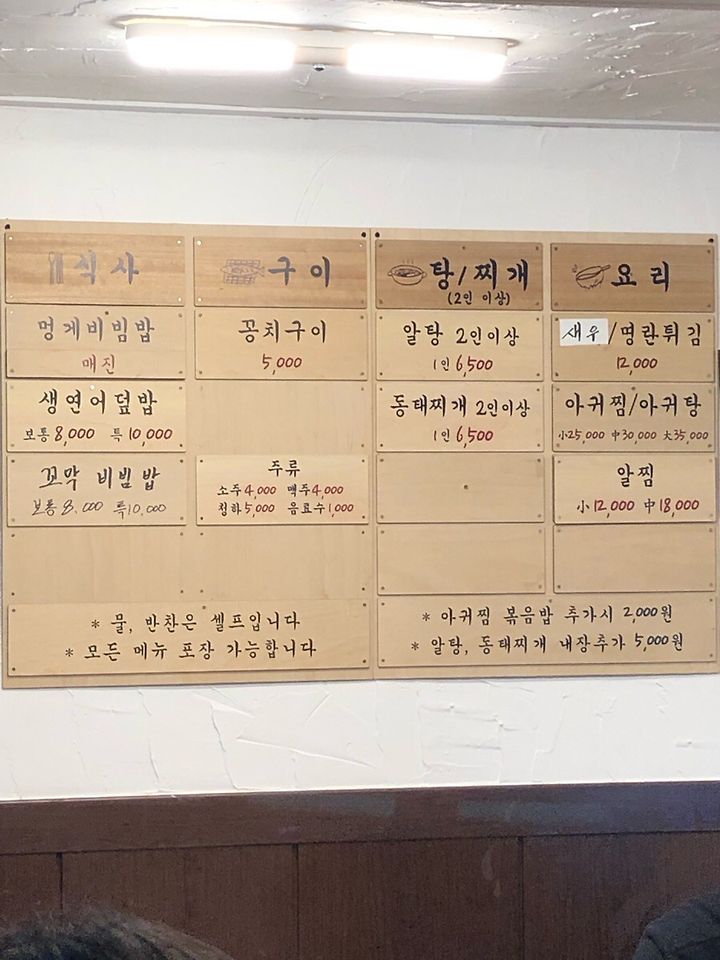 식사
멍게비빔밥
매진
생연어덮밥
보통 8,000 특 10,000
꼬막 비빔밥
보통 8,000 특 10,000
구이
꽁치구이
5,000
주류
소주 4,000 맥주 4,000
청하 5,000 음료수 1,000
* 물, 반찬은 셀프입니다
* 모든 메뉴 포장 가능합니다
탕/찌개
(2인 이상)
알탕 2인이상
1인 6,500
동태찌개 2인이상
1인 6,500
요리
새우/명란튀김
12,000
아귀찜/아귀탕
小25,000 中30,000 大35,000
알찜
小 12,000 中 18,000
* 아귀찜 볶음밥 추가시 2,000원
* 알탕, 동태찌개 내장추가 5,000원